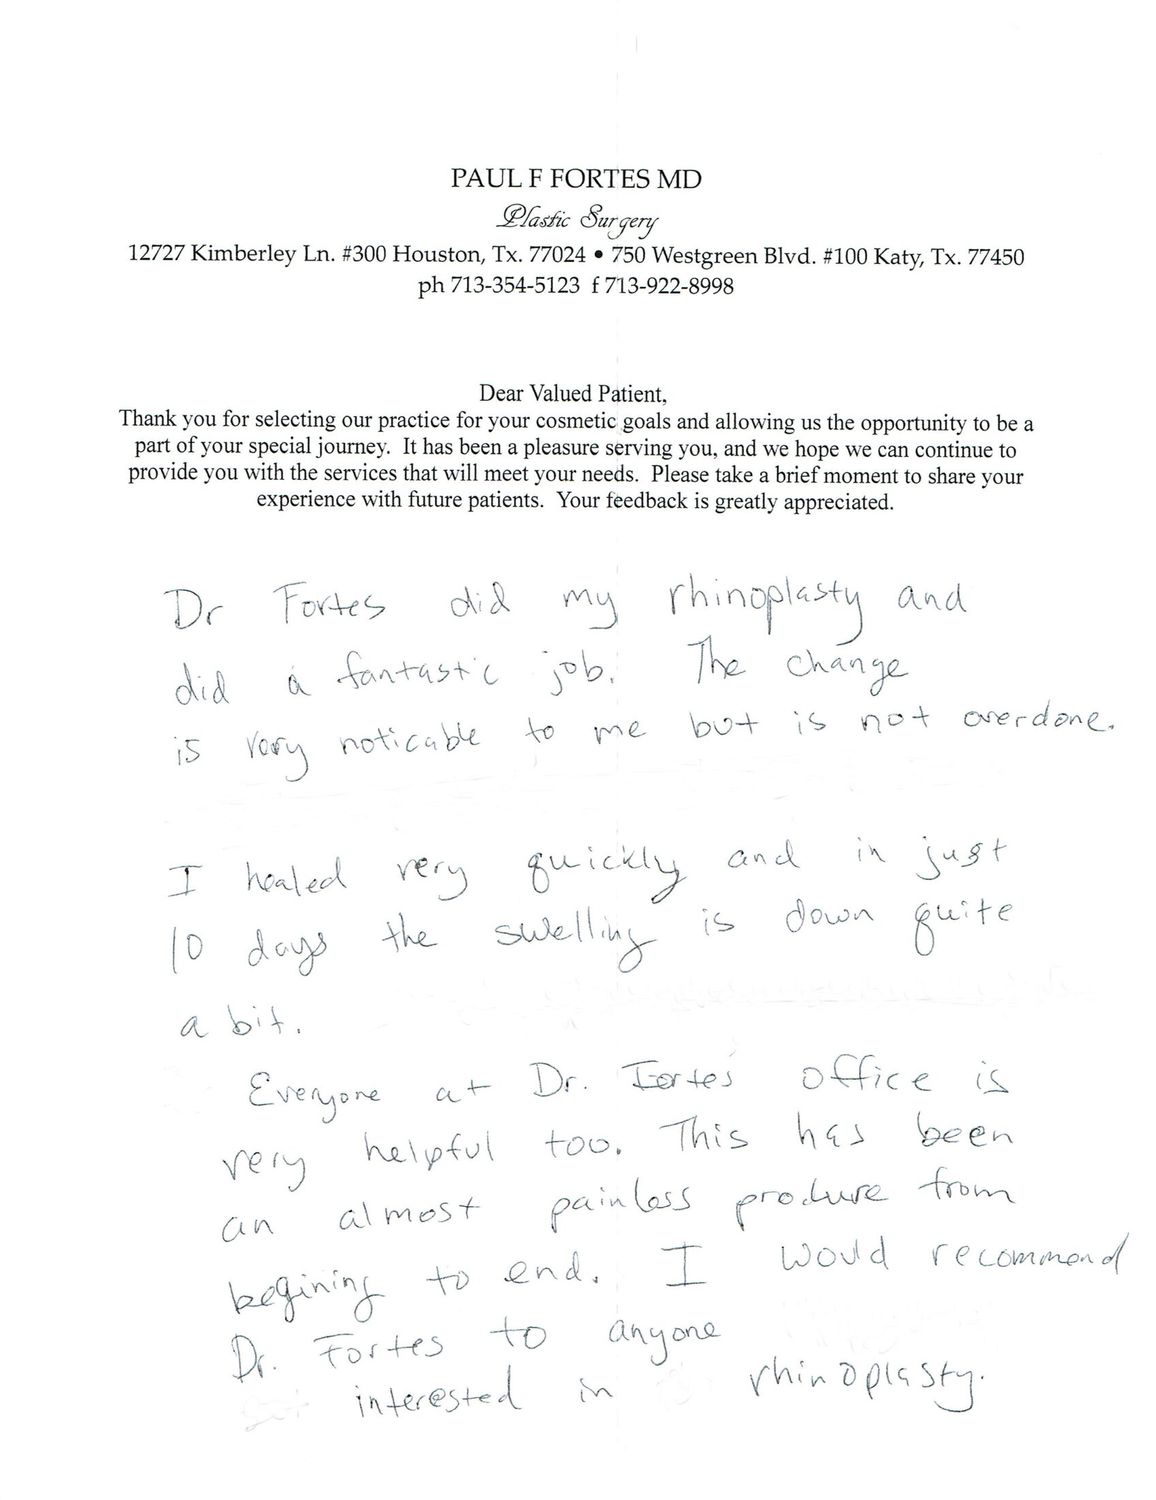 PAUL F FORTES MD
Plastic Surgery
12727 Kimberley Ln. #300 Houston, Tx. 77024 • 750 Westgreen Blvd. #100 Katy, Tx. 77450
ph 713-354-5123 f 713-922-8998
Dear Valued Patient,
Thank you for selecting our practice for your cosmetic goals and allowing us the opportunity to be a
part of your special journey. It has been a pleasure serving you, and we hope we can continue to
provide you with the services that will meet your needs. Please take a brief moment to share your
experience with future patients. Your feedback is greatly appreciated.
Dr Fortes did my rhinoplasty and
did a fantastic job. The change
is very noticable to me but is not overdone.
I healed very quickly and in just
10 days the swelling is down quite
a bit.
Everyone at Dr. Fortes' office is
very helpful too. This has been
an almost painless produre from
begining to end. I would recommend
Dr. Fortes to anyone
interested in rhinoplasty.